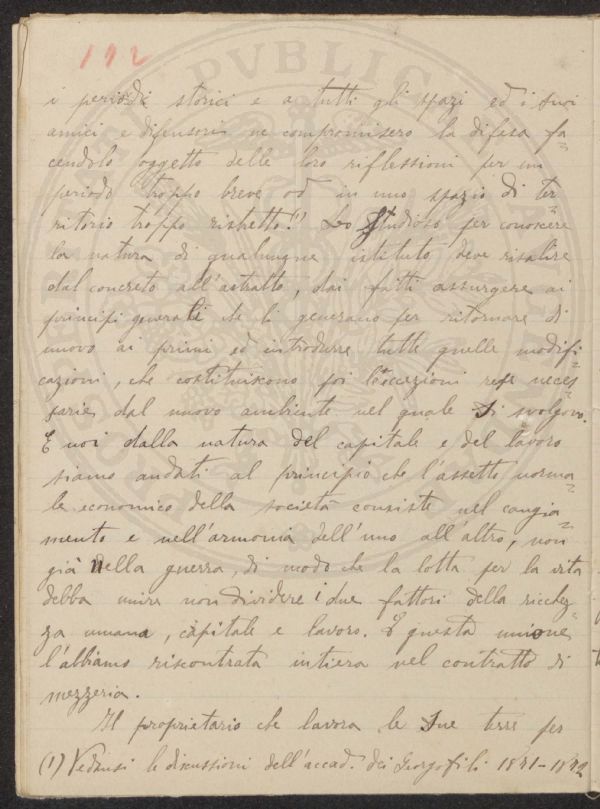 192
i periodi storici e a tutti gli spazi ed i suoi
amici e difensori ne compromisero la difesa fa=
cendolo oggetto delle loro riflessioni per un
periodo troppo breve od in uno spazio di ter=
ritorio troppo ristretto.(1) Lo studioso per conoscere
la natura di qualunque istituto deve risalire
dal concreto all'astratto, dai fatti assurgere ai
principi generali che li generano per ritornare di
nuovo ai primi ed introdurre tutte quelle modifi=
cazioni, che costituiscono poi l'eccezioni rese neces=
sarie dal nuovo ambiente nel quale si svolgono.
E noi dalla natura del capitale e del lavoro
siamo andati al principio che l'assetto norma=
le economico della società consiste nel congia=
mento e nell'armonia dell'uno all'altro, non
già nella guerra, di modo che la lotta per la vita
debba unire non dividere i due fattori della ricchez=
za umana, capitale e lavoro. E questa unione
l'abbiamo riscontrata intiera nel contratto di
mezzeria.
Il proprietario che lavora le sue terre per
(1) Vedansi le discussioni dell'accad. dei Georgofili